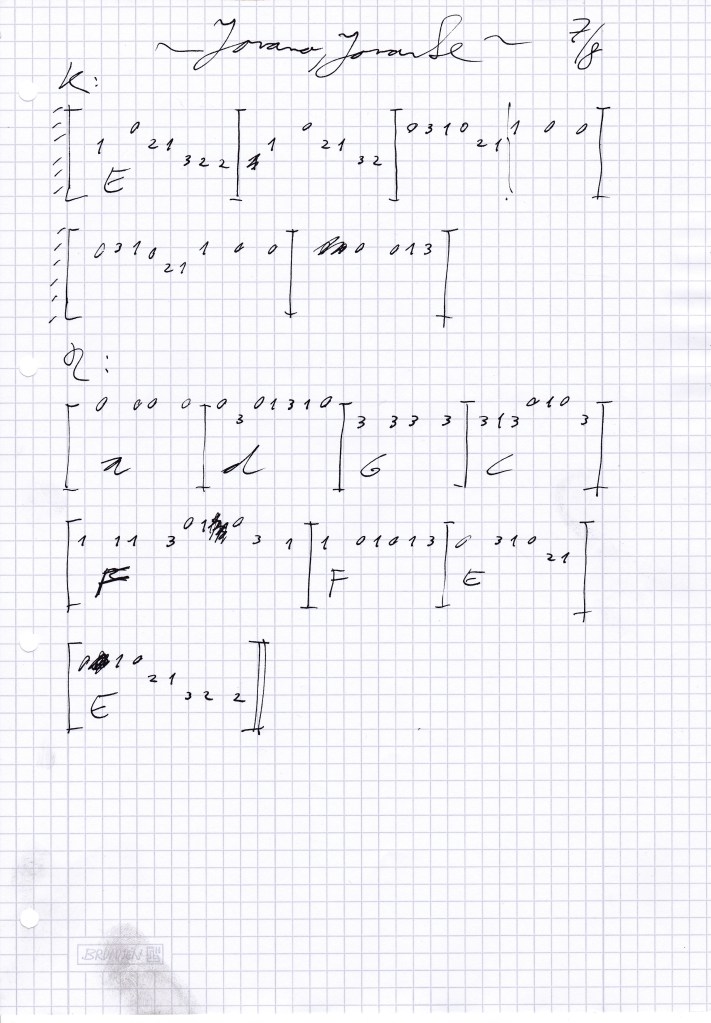 ~ Jovano, Jovanke ~ 7/8
K:
1 0 2 1 3 2 2 1 0 2 1 3 2 0 3 1 0 2 1 1 0 0
E
0 3 1 0 2 1 1 0 0 0 0 1 3
R:
0 0 0 0 0 3 0 1 3 1 0 3 3 3 3 3 1 3 0 1 0 3
a d G C
1 1 1 3 0 1 0 3 1 1 0 1 0 1 3 0 3 1 0 2 1
F F E
0 1 0 2 1 3 2 2
E
BRUNNEN